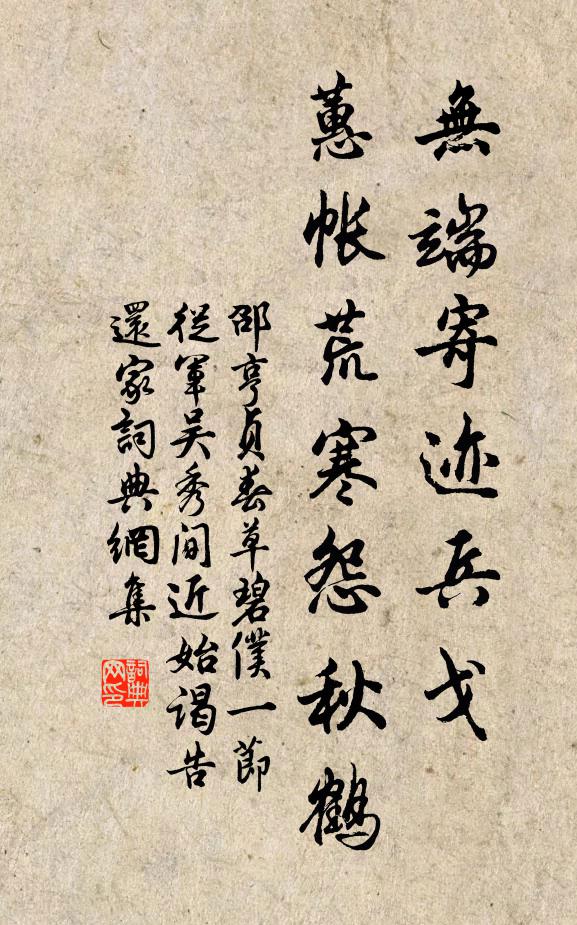 無端寄迹兵戈
蕙帳荒寒怨秋鶴
邵亨貞春草碧僕一節
從軍吳秀間近始謁告
還家詞典網集
詞典
网印